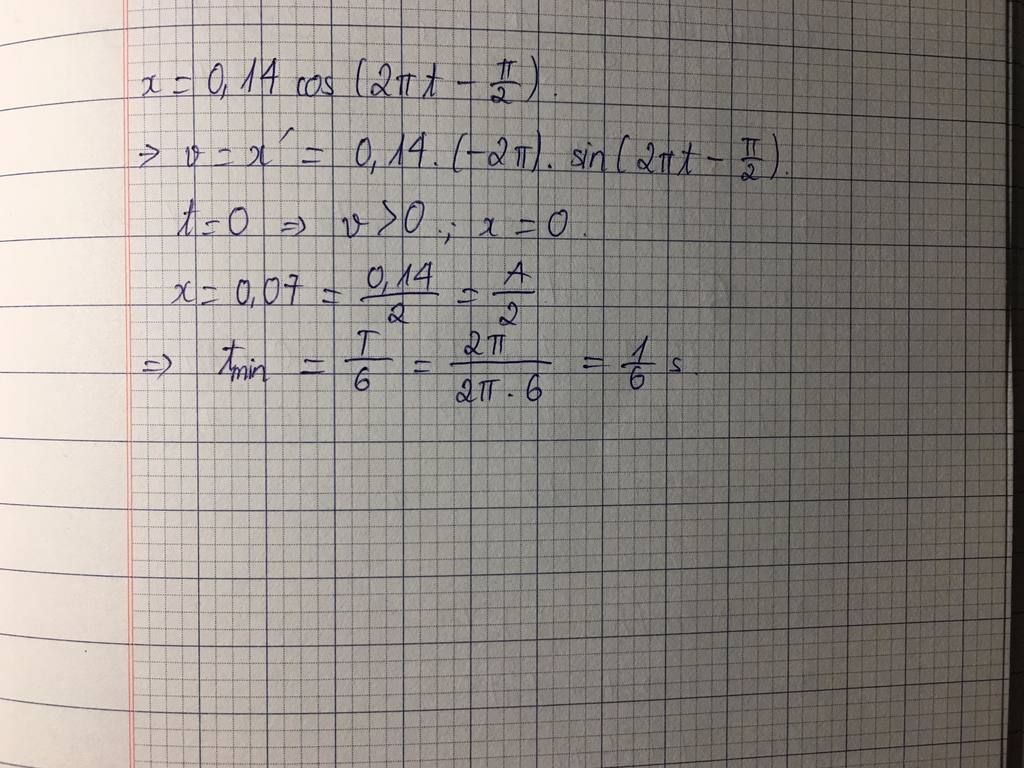 x = 0,14 cos (2πt - π/2).
⇒ v = x' = 0,14. (-2π). sin(2πt - π/2).
t = 0 ⇒ v > 0 ; x = 0.
x = 0,07 = 0,14/2 = A/2
⇒ tmin = T/6 = 2π/2π.6 = 1/6 s.